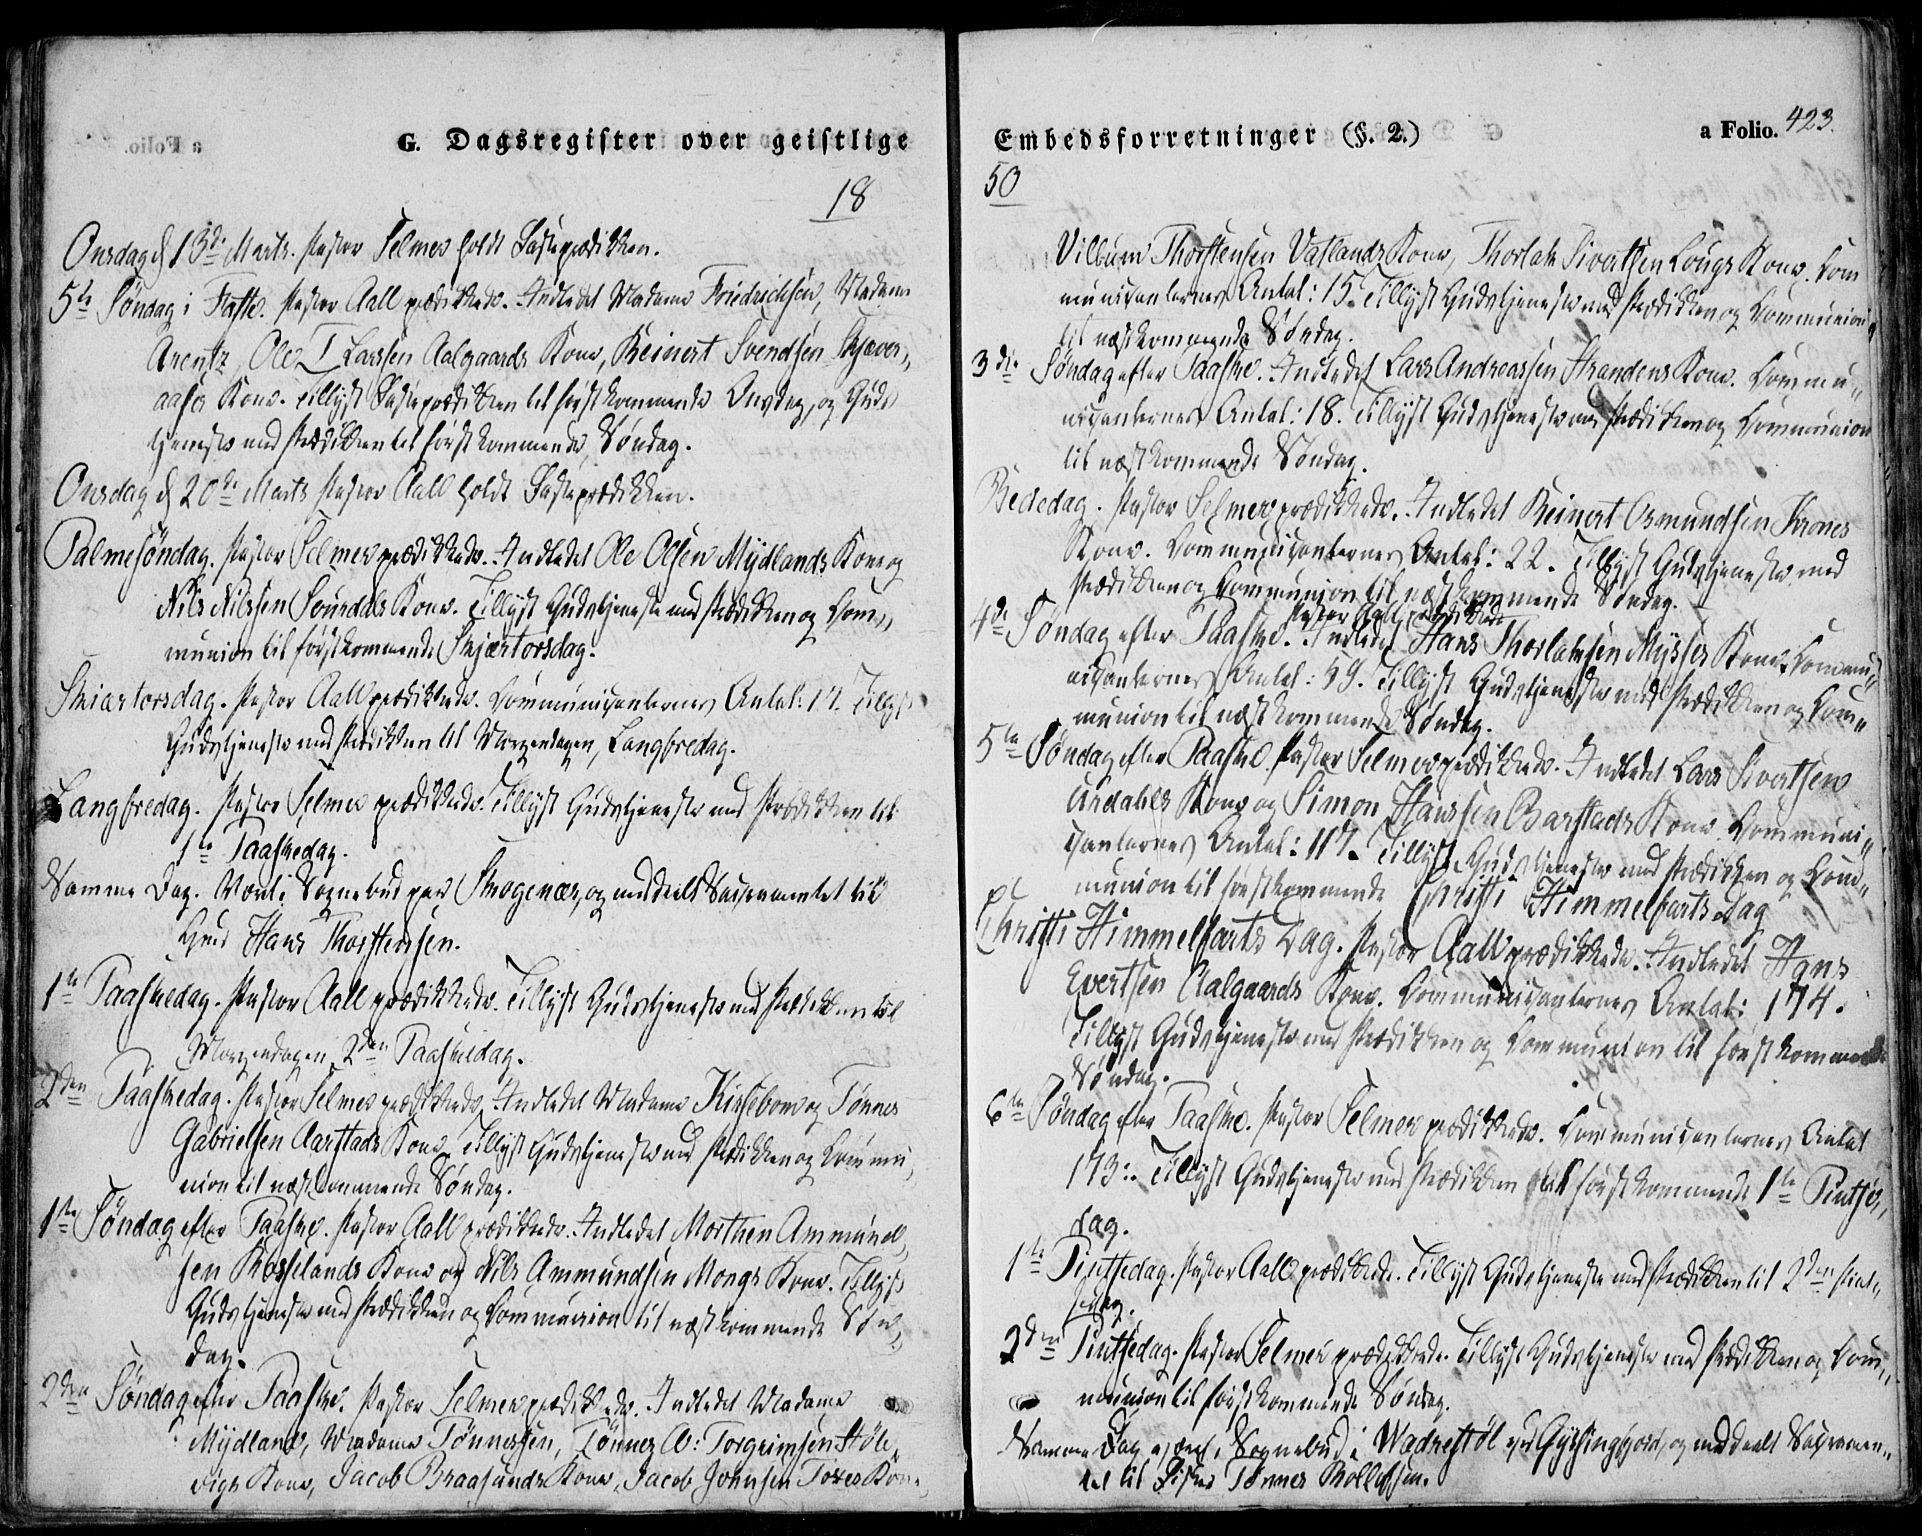 a Folio.
G. Dagsregister over geistlige
18
Onsdag d 13de Marts. Pastor Selmer holdt Fasteprædikken.
5te Søndag i Faste. Pastor Aall prædikkede. Indledet Madame Friedrichsen, Madame
Arentz, Ole T Larssen Aalgaards Kone, Reinert Svendsen Skjæver,,
aases Kone. Tillyst Fasteprædikken til førstkommende Onsdag, og Guds
tjeneste med Prædikken til førstkommende Søndag.
Onsdag d 20de Marts Pastor Aall holdt Fasteprædikken.
Palmesøndag. Pastor Selmer prædikkede. Indledet Ole Olsen Mydlands Kone og
Nils Nilssen Sourdals Kone. Tillyst Gudstjeneste med Prædikken og Com,,
munion til førstkommende Skjærtorsdag.
Skiærtorsdag. Pastor Aall prædikkede. Communicanternes Antal: 17. Tillyst
Gudstjeneste med Prædikken til Morgendagen, Langfredag.
Langfredag. Pastor Selmer prædikkede. Tillyst Gudstjeneste med Prædikken til
1te Paaskedag.
Samme Dag. Været i Sognebud paa Skogenæs, og meddeelt Sacramentet til
Hans Thorstensen.
1te Paaskedag. Pastor Aall prædikkede. Tillyst Gudstjeneste med Prædikken til
Morgendagen, 2den Paaskedag.
2den Paaskedag. Pastor Selmer prædikkede. Indledet Madame Kirsebom og Tønnes
Gabrielsen Aarstads Kone. Tillyst Gudstjeneste med Prædikken og Commu,,
nion til næstkommende Søndag.
1ste Søndag efter Paaske. Pastor Aall prædikkede. Indledet Morthen Ammund,,
sen Rosselands Kone og Nils Ammundsen Mongs Kone. Tillyst
Gudstjeneste med Prædikken og Communion til næstkommende Søn,,
dag.
2den Søndag efter Paaske. Pastor Selmer prædikkede. Indledet Madame
Mydland, Madame Tønnessen, Tønnes A: Torgrimsen Høle,
vigs Kone, Jacob Braasunds Kone, Jacob Johnsen Toxes Kone,
Embedsforretninger (§. 2.)
a Folio. 423.
50
Vilbum Thorstensen Vatlands Kone, Thorlak Sivertsen Lougs Kone. Com
municanternes Antal: 15. Tillyst Gudstjeneste med Prædikken og Communion
til næstkommende Søndag.
3die Søndag efter Paaske. Indledet Lars Andreassen Strandens Kone. Commu,,
nicanternes Antal: 18. Tillyst Gudstjeneste med Prædikken og Communion
til næstkommende Søndag.
Bededag. Pastor Selmer prædikkede. Indledet Reinert Osmundsen Krones
Kone. Communicanternes Antal: 22. Tillyst Gudstjeneste med
Prædikken og Communion til næstkommende Søndag.
Pastor Aall prædikkede
4de Søndag efter Paaske. Indledet Hans Thorlaksen Mysses Kone. Commu,,
nicanternes Antal: 59. Tillyst Gudstjeneste med Prædikken og Com,,
munion til næstkommende Søndag.
5te Søndag efter Paaske. Pastor Selmer prædikkede. Indledet Lars Sivertsen
Urdahls Kone og Simon Hanssen Barstads Kone Communi,,
canternes Antal: 117. Tillyst Gudstjeneste med Prædikken og Com,,
munion til førstkommende Christi Himmelfarts Dag
Christi Himmelfarts Dag. Pastor Aall prædikkede. Indledet Hans
Evertsen Aalgaards Kone. Communicanternes Antal: 174.
Tillyst Gudstjeneste med Prædikken og Communion til førstkommende
Søndag.
6te Søndag efter Paaske. Pastor Selmer prædikkede. Communicanternes Antal
173. Tillyst Gudstjeneste med Prædikken til førstkommende 1te Pintse,,
dag.
1te Pintsedag. Pastor Aall prædikkede. Tillyst Gudstjeneste med Prædikken til 2den Pint,,
sedag.
2den Pintsedag. Pastor Selmer prædikkede. Tillyst Gudstjeneste med Prædikken og Com,,
munion til førstkommende Søndag.
Samme Dag været i Sognebud i Wadrestøl ved Gydsingfjord, og meddeelt Sacramen,,
tet til Tønnes Rollefsen.